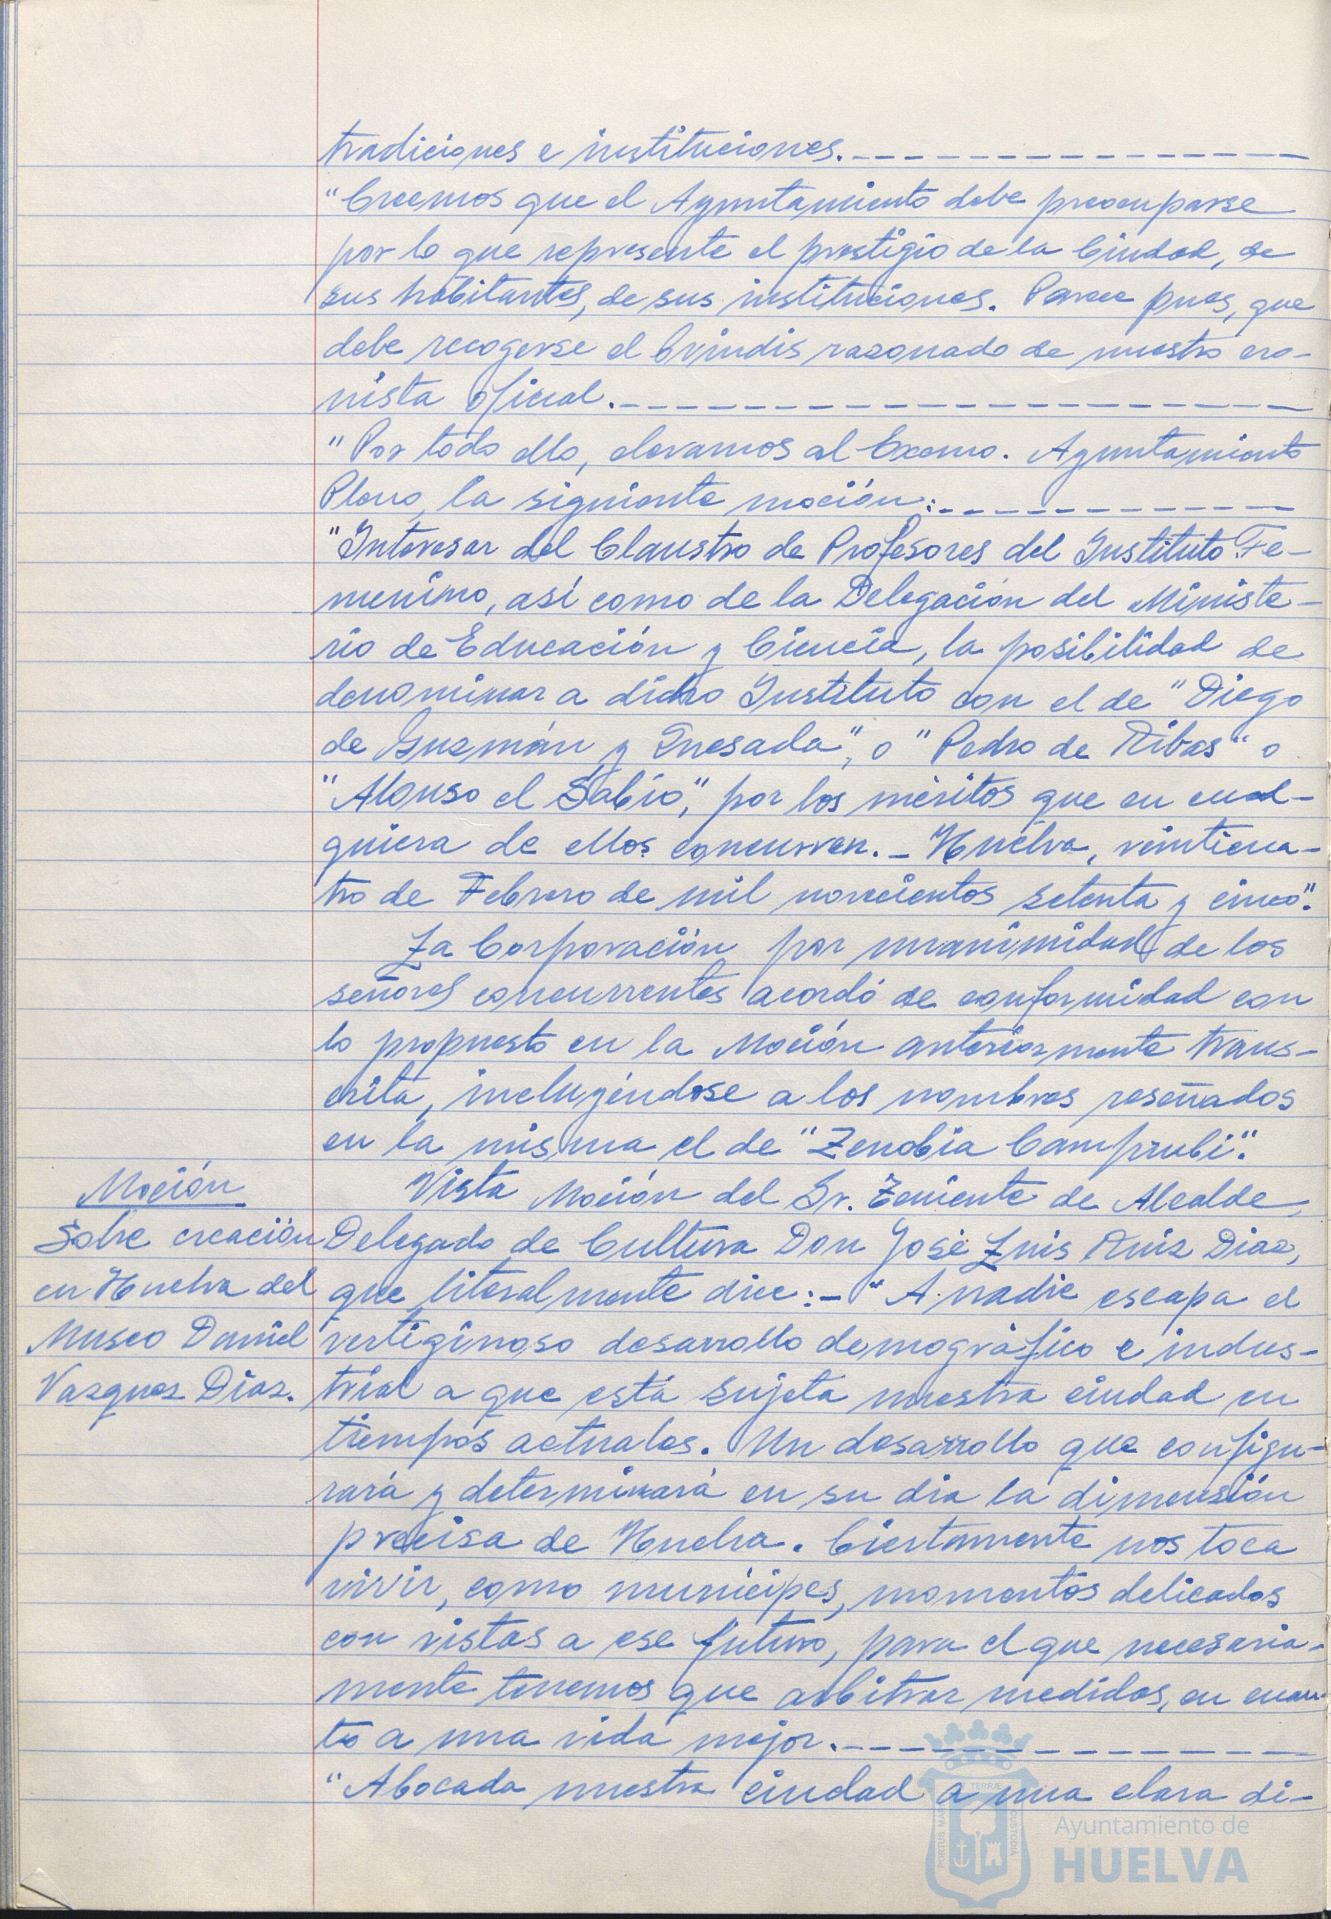 tradiciones e instituciones.
"Creemos que el Ayuntamiento debe preocuparse
por lo que represente el prestigio de la Ciudad, de
sus habitantes, de sus instituciones. Parece pues, que
debe recogerse el brindis razonado de nuestro cro-
nista oficial.
"Por todo ello, elevamos al Excmo. Ayuntamiento
Pleno, la siguiente moción:
"Interesar del Claustro de Profesores del Instituto Fe-
menino, así como de la Delegación del Ministe-
rio de Educación y Ciencia, la posibilidad de
denominar a dicho Instituto con el de "Diego
de Guzmán y Quesada", o "Pedro de Ribas" o
"Alonso el Sabio", por los méritos que en cual-
quiera de ellos concurren.- Huelva, veinticua-
tro de Febrero de mil novecientos setenta y cinco".
La Corporación por unanimidad de los
señores concurrentes acordó de conformidad con
lo propuesto en la Moción anteriormente trans-
crita, incluyéndose a los nombres reseñados
en la misma el de "Zenobia Camprubí".
Moción
Sobre creación
en Huelva del
Museo Daniel
Vazquez Diaz.
Vista Moción del Sr. Teniente de Alcalde,
Delegado de Cultura Don José Luis Ruiz Diaz,
que literalmente dice:- "A nadie escapa el
vertiginoso desarrollo demográfico e indus-
trial a que está sujeta nuestra ciudad en
tiempos actuales. Un desarrollo que configu-
rará y determinará en su dia la dimensión
precisa de Huelva. Ciertamente nos toca
vivir, como munícipes, momentos delicados
con vistas a ese futuro, para el que necesaria-
mente tenemos que arbitrar medidas, en cuan-
to a una vida mejor.
"Abocada nuestra ciudad a una clara di-
PORTUS MARIS
TERRÆ
CUSTODIA
Ayuntamiento de
HUELVA